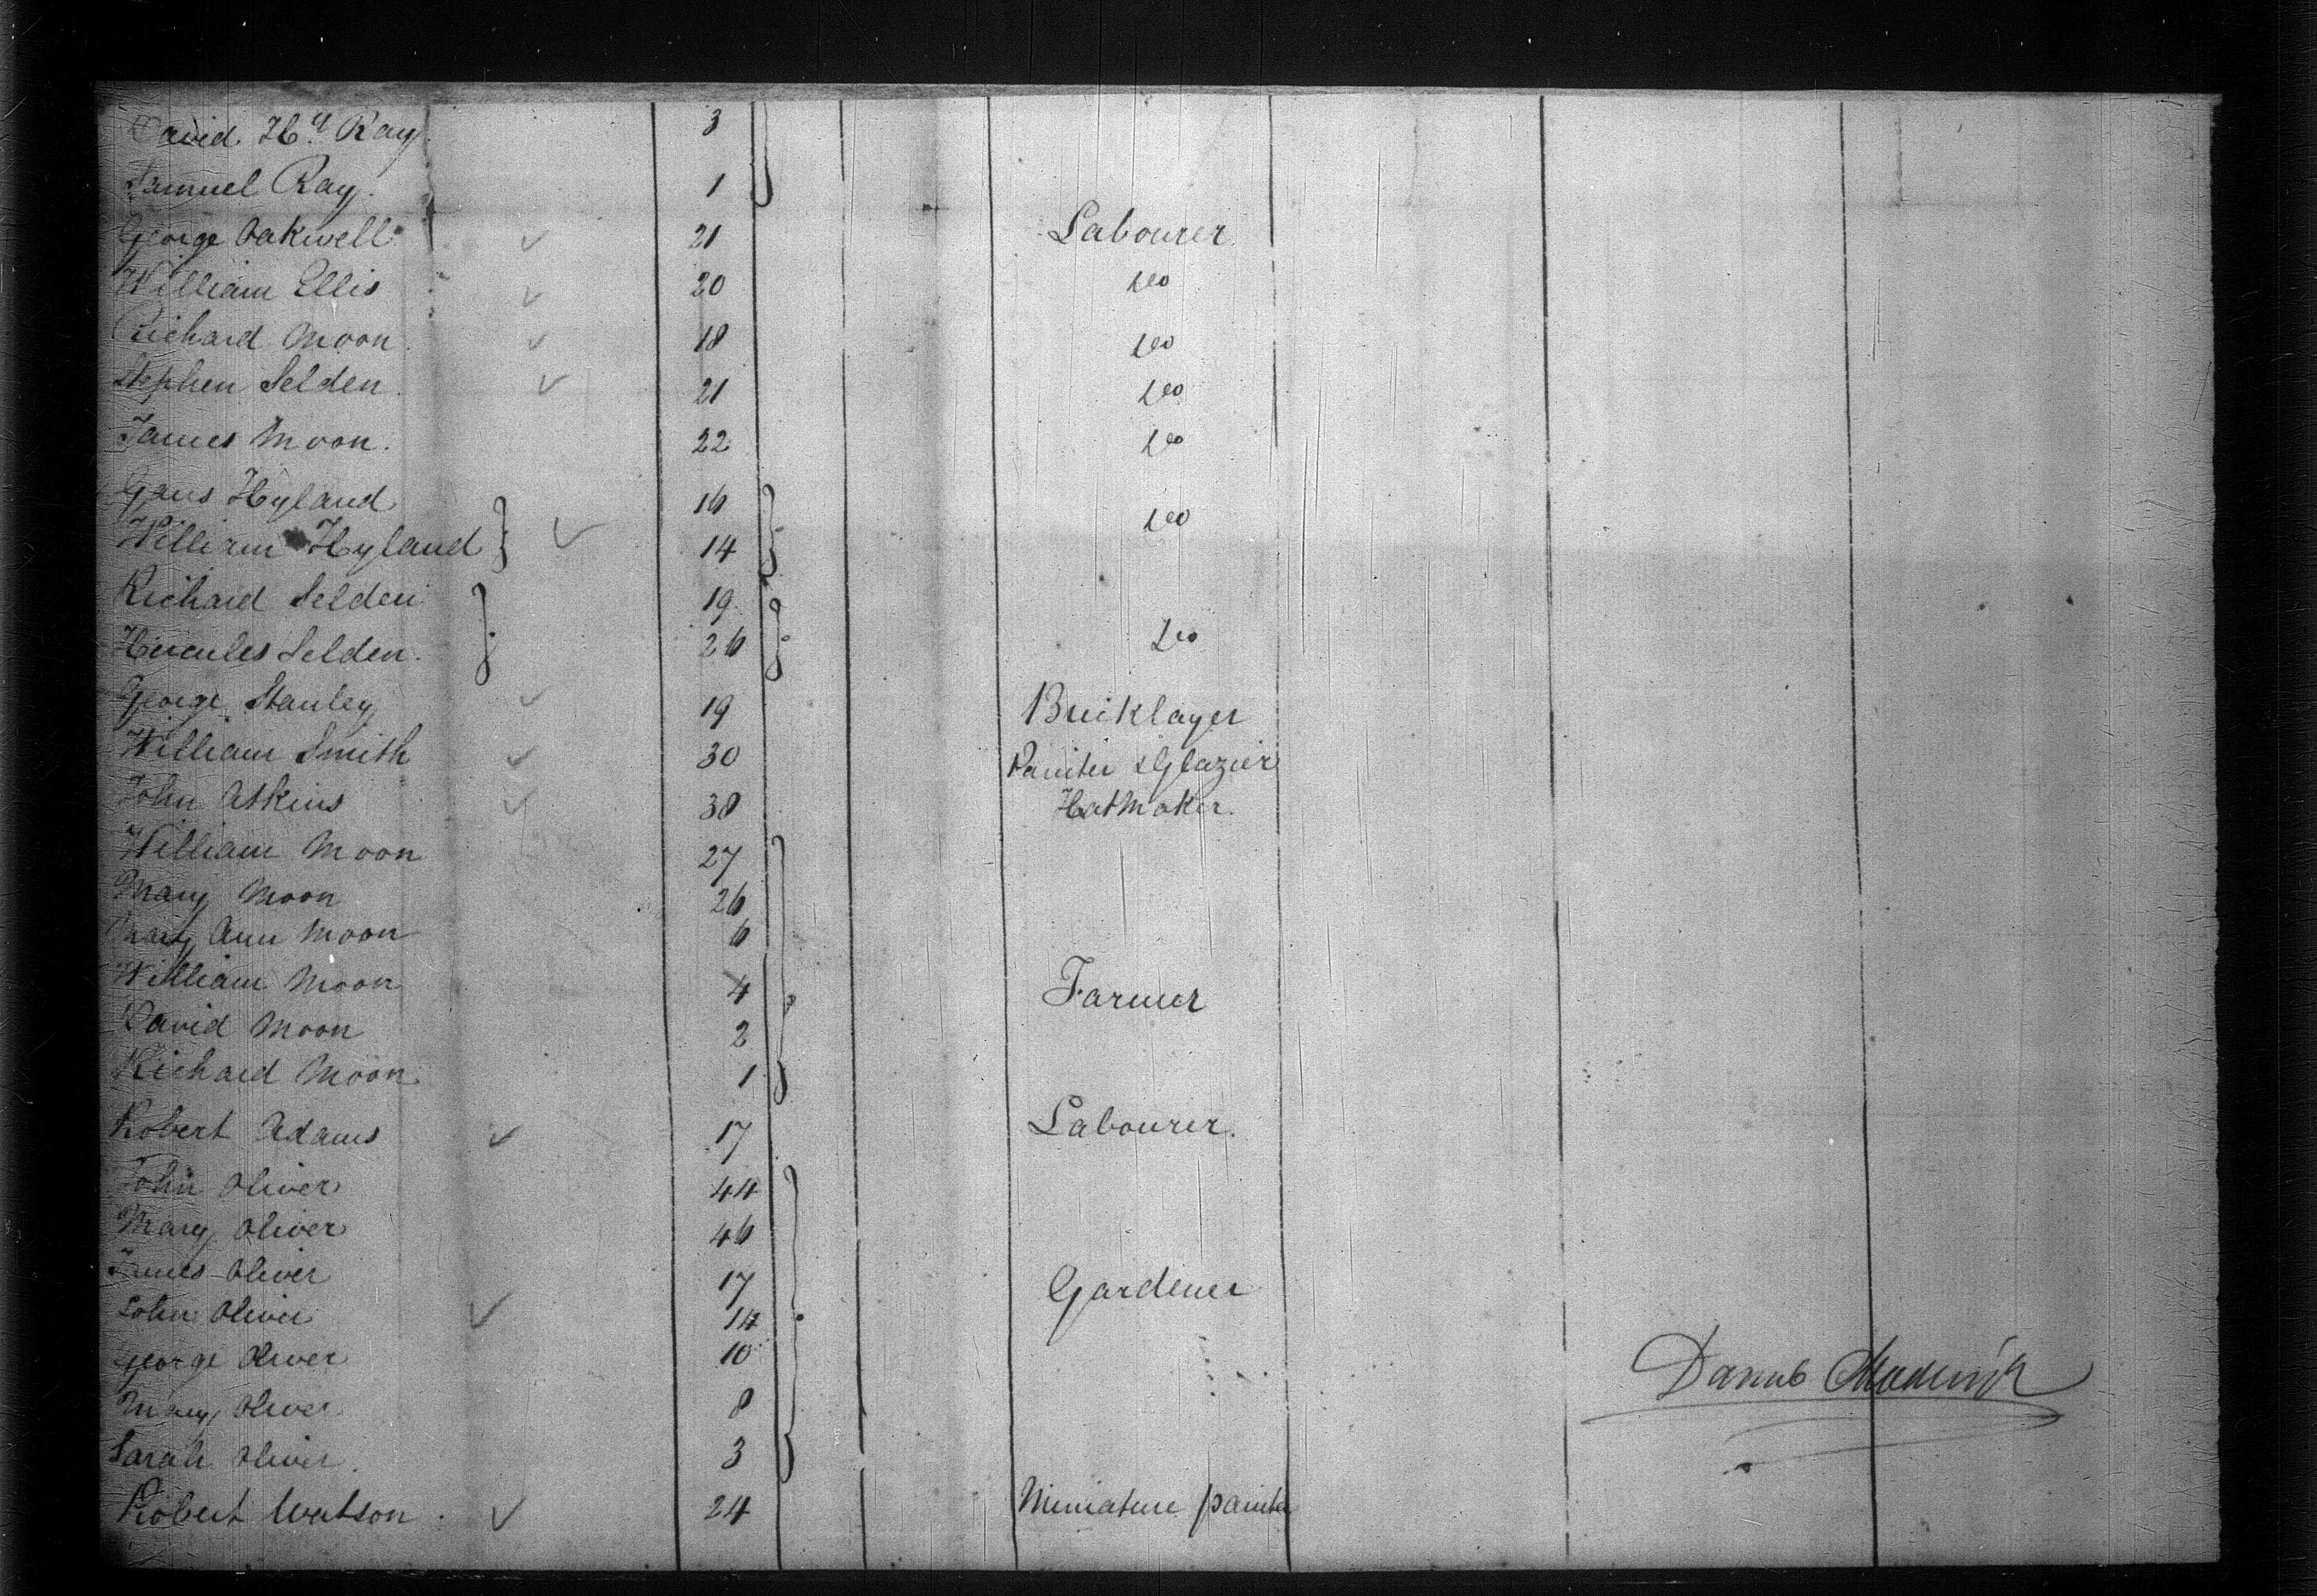 David Hy Ray 3
Samuel Ray. 1
George Oakwell 21 Labourer
William Ellis 20 Do
Richard Moon 18 Do
Stephen Selden 21 Do
James Moon. 22 Do
Hyland 16
William Hyland 14 Do
Richard Selden 19
Hercules Selden. 26 Do
George Stanley 19 Bricklayer
William Smith 30 Painter & Glazier
John Atkins 38 Hat Maker.
William Moon 27
Mary Moon 26
Mary Ann Moon 6
William Moon 4 Farmer
David Moon 2
Richard Moon 1
Robert Adams 17 Labourer.
John Oliver 44
Mary Oliver 46
James Oliver 17 Gardener
John Oliver 14
George Oliver 10
Mary Oliver 8
Sarah Oliver. 3
Robert Watson. 24 Miniature painter